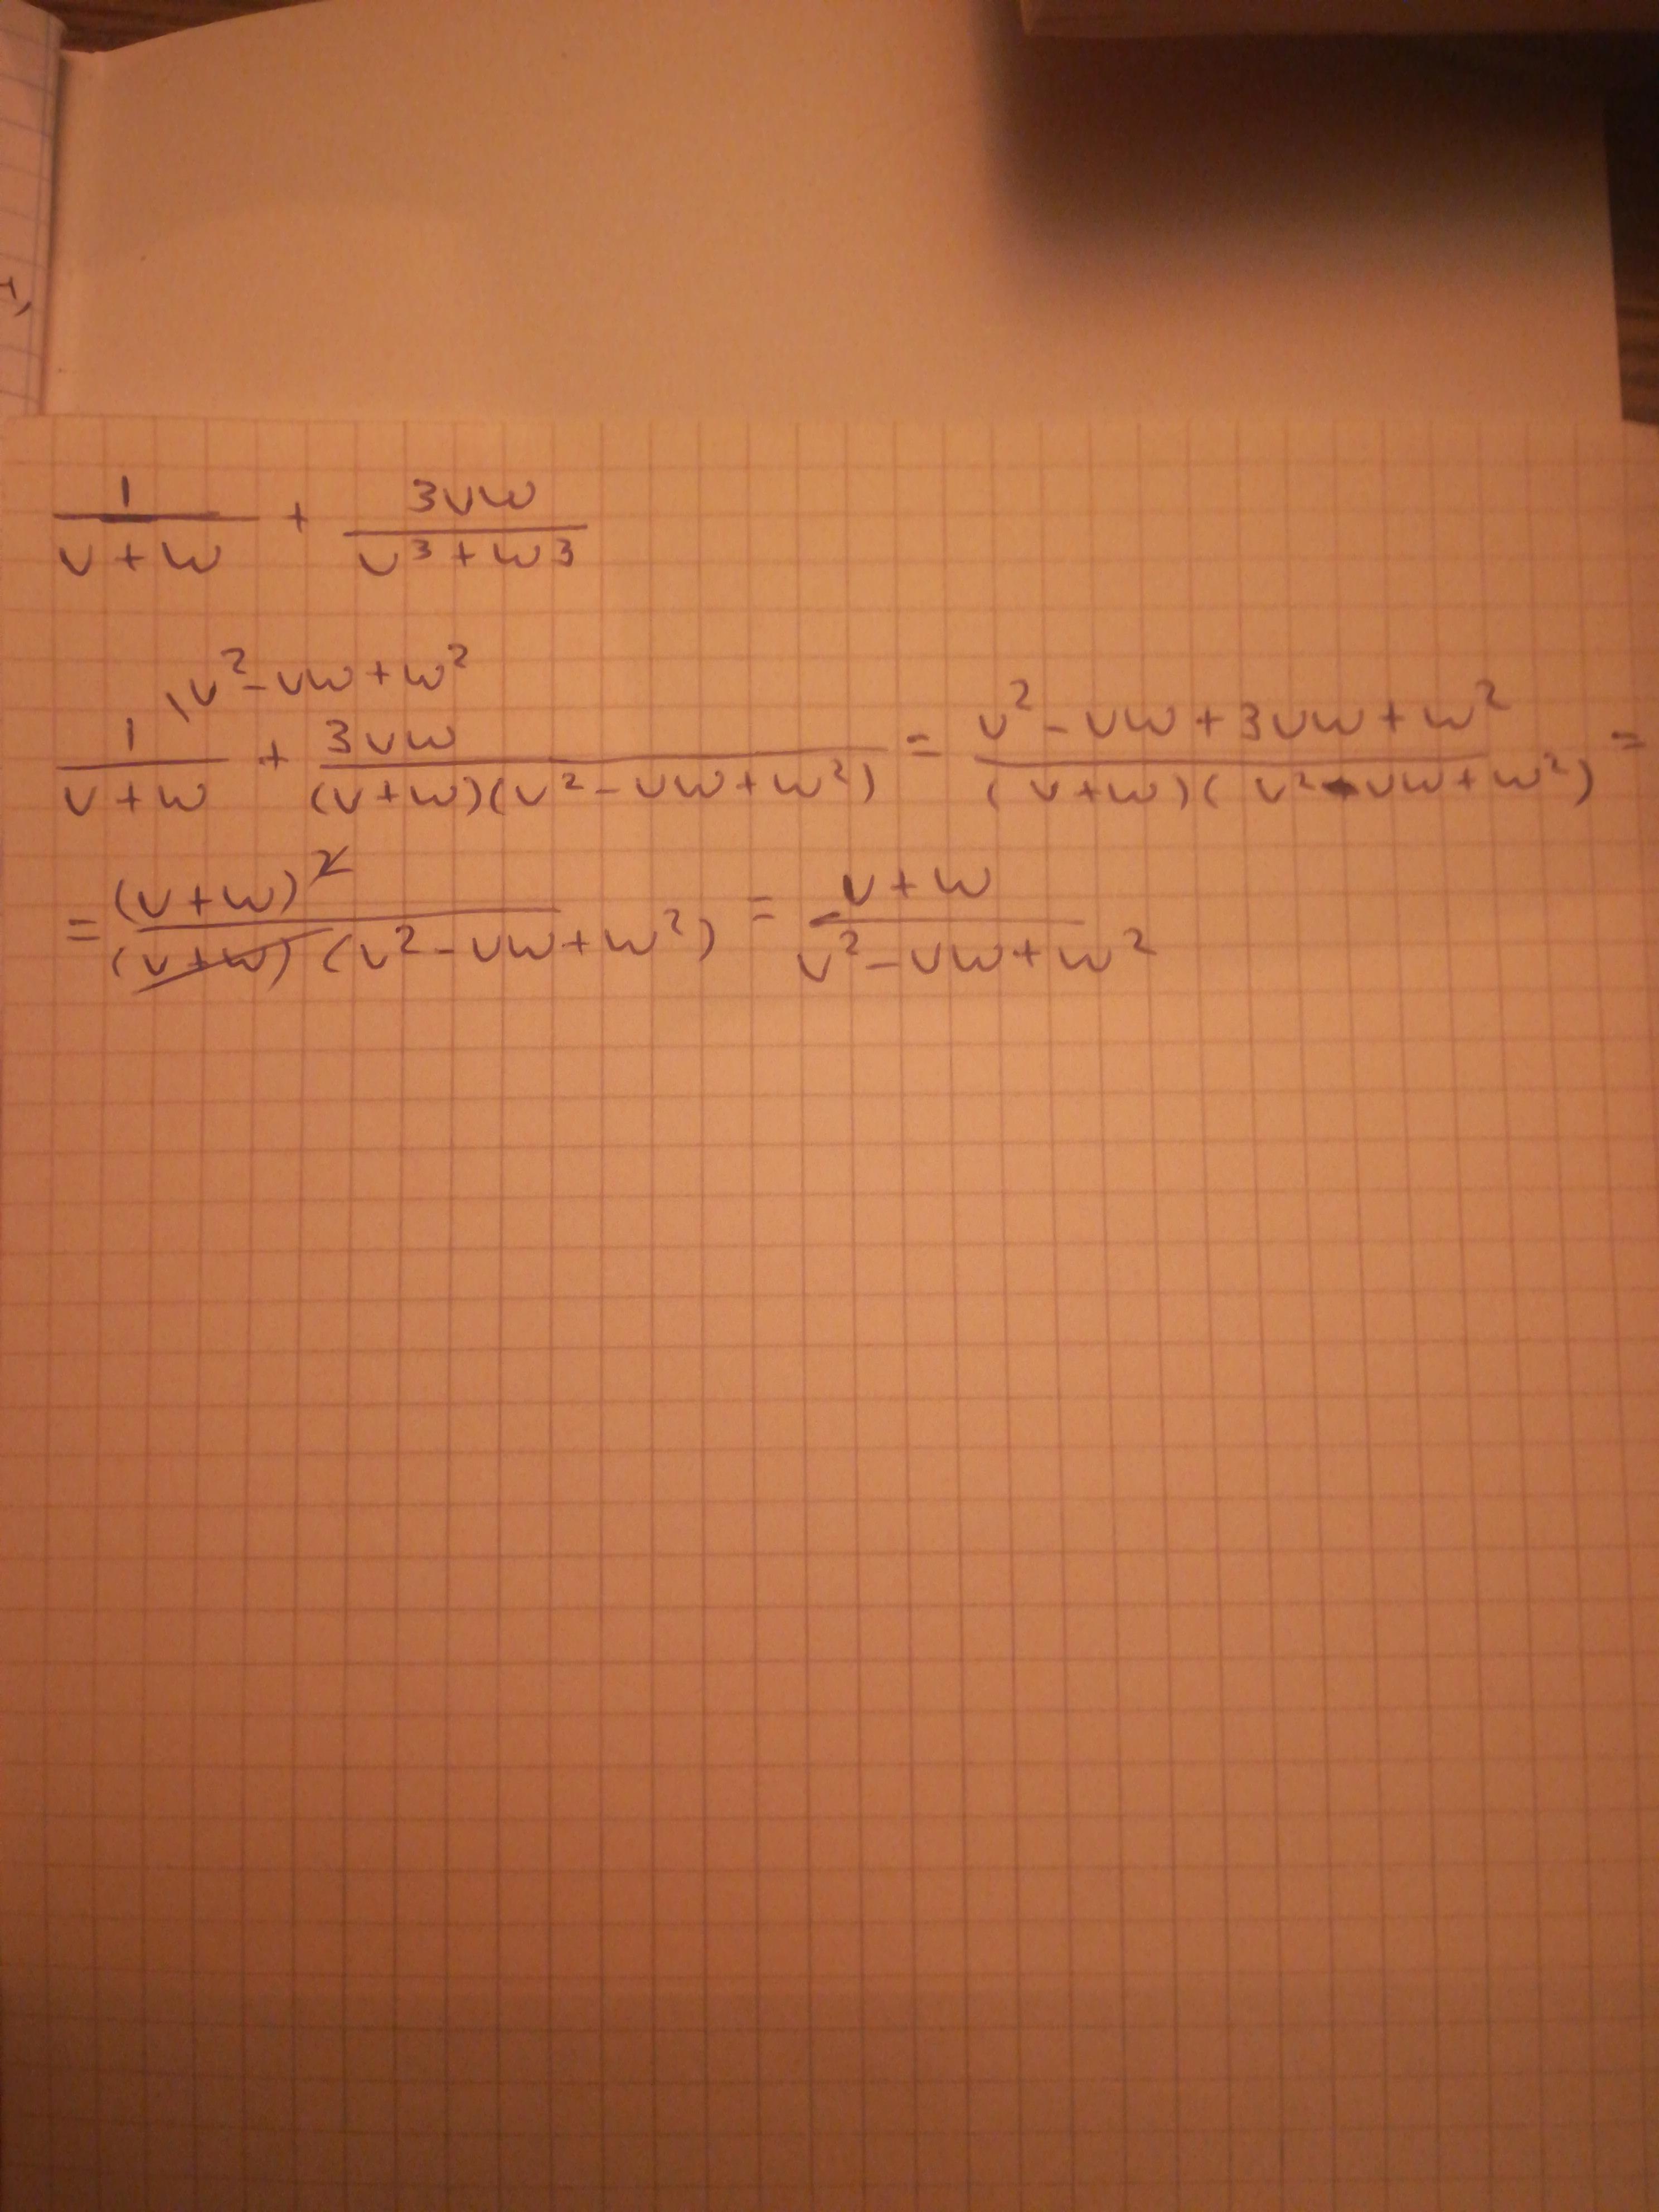 1/(v+w) + 3vw/(v³+w³)
\v²-vw+w²
1/(v+w) + 3vw/((v+w)(v²-vw+w²)) = (v²-vw+3vw+w²)/((v+w)(v²-vw+w²)) =
= (v+w)²/((v+w)(v²-vw+w²)) = (v+w)/(v²-vw+w²)